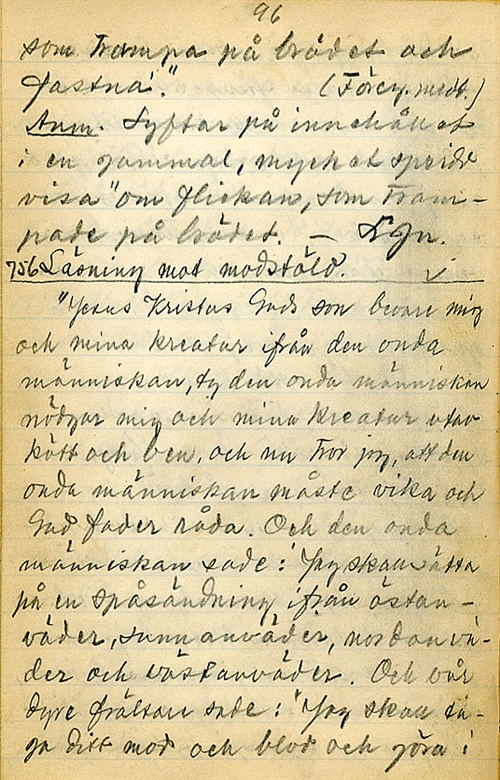 96
som Trampa på brödet och
fastna!." (Förcy. medd.)
Anm. Syftar på innehållet
i en gammal, mycket spridd
visa "om flickan, som Tram-
pade på brödet. —
756 Läsning mot modstöld. ✓
"Jesus Kristus Guds son bevare mig
och mina kreatur ifrån den onda
människan, ty den onda människan
nödgar mig och mina kreatur utav
kött och ben, och nu tror jag, att den
onda människan måste vika och
Gud fader råda. Och den onda
människan sade: "Jag skall sätta
på en spåsändning ifrån östan-
väder, sunnanväder, nordanvä-
der och västanväder. Och vår
dyre frälsare sade: "Jag skall ta-
ga ditt mod och blod och göra i